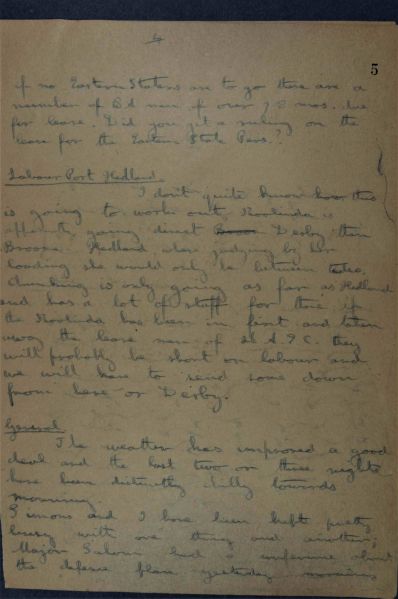 5
if no Eastern Staters are to go there are a
number of Bd men of over 18 mos. due
for leave. Did you get a ruling on the
leave for the Eastern State Pers.?
Labour Port Hedland.
I don't quite know how this
is going to work out. Koolinda is
going direct Derby then
Broome Hedland when judging by her
loading she would only be between
is only going as far as Hedland
and has a lot of stuff for there if
the Koolinda has been in first and taken
away the leave men of they
will probably be short on labour and
we will have to send some down
from here or Derby.
General
The weather has improved a good
deal and the last two or three nights
have been distinctly chilly towards
morning.
Simons and I have been kept pretty
busy with one thing and another;
Major had a conference about
the defence plan yesterday